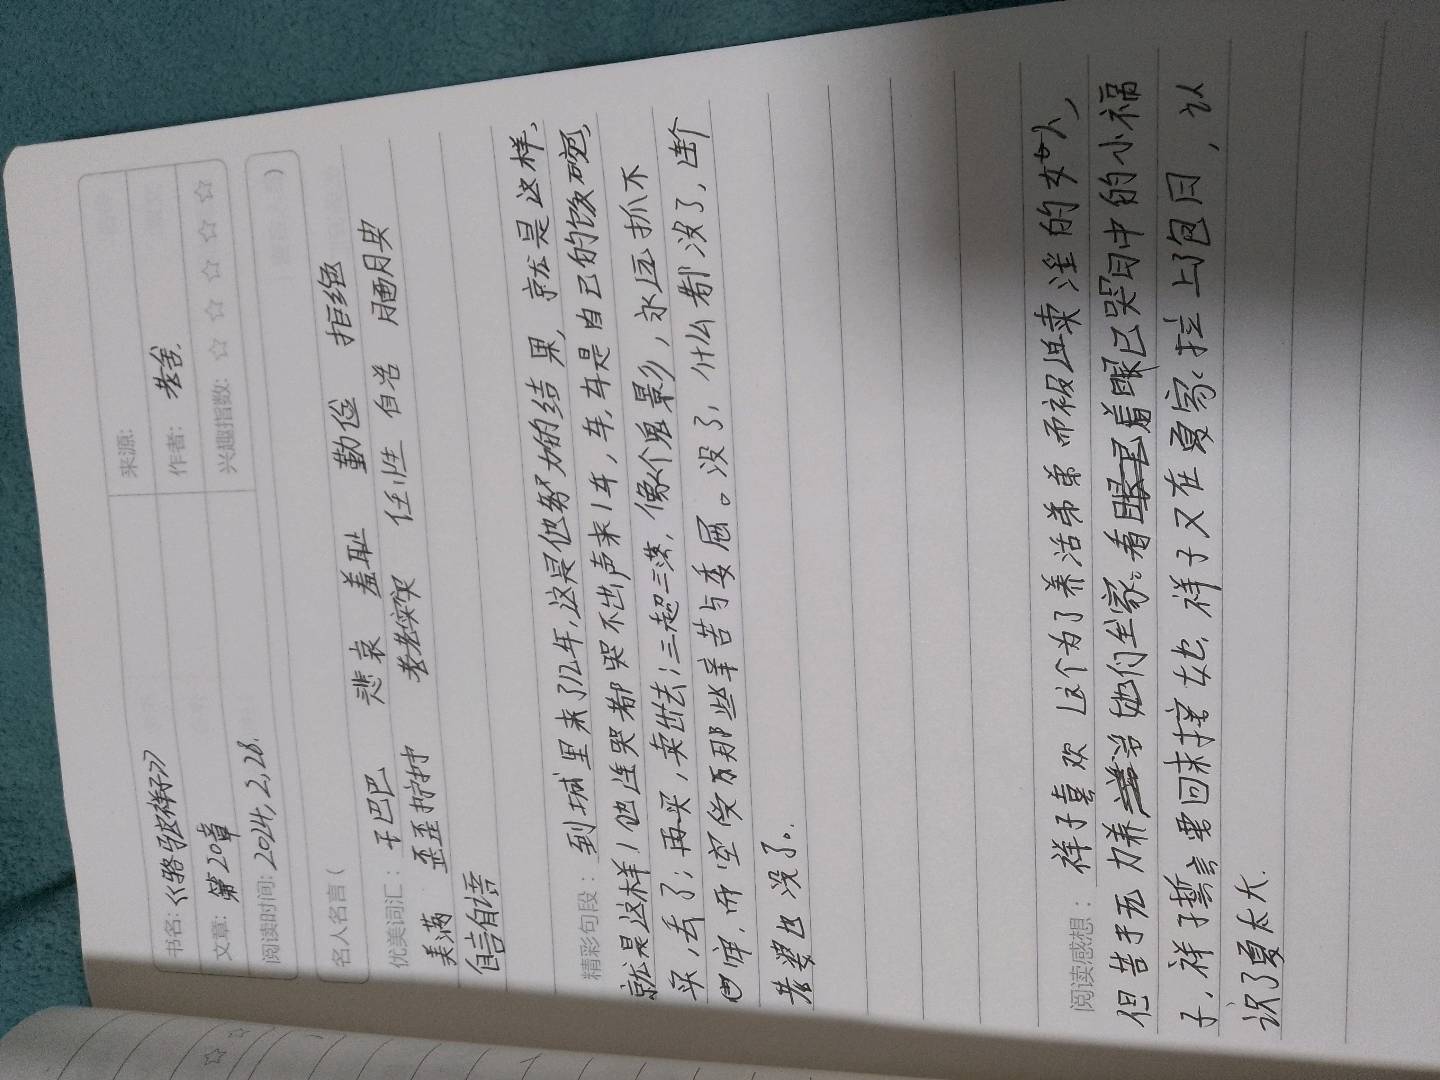 书名:《骆驼祥子》 来源:
文章: 第20章 作者: 老舍.
阅读时间: 2024,2,28. 兴趣指数: ☆ ☆ ☆ ☆ ☆
名人名言( )
优美词汇: 干巴巴 悲哀 羞耻 勤俭 拒绝
美满 歪歪拧拧 老老实实 任性 自咎 胭月央
自言自语
精彩句段: 到城里来了几年,这是他努力的结果,就是这样,
就是这样!他连哭都哭不出声来!车,车,车是自己的饭碗,
买,丢了;再买,卖出去;三起三落,像个鬼影,永远抓不
牢,而空受了那些辛苦与委屈。没了,什么都没了,连个
老婆也没了。
阅读感想: 祥子喜欢这个为了养活弟弟而被迫卖淫的女人,
但苦于无力养活她们全家。看着眼已哭肿的小福
子,祥子誓言要回来接她.祥子又在夏家拉上了包月,认
识了夏太太.